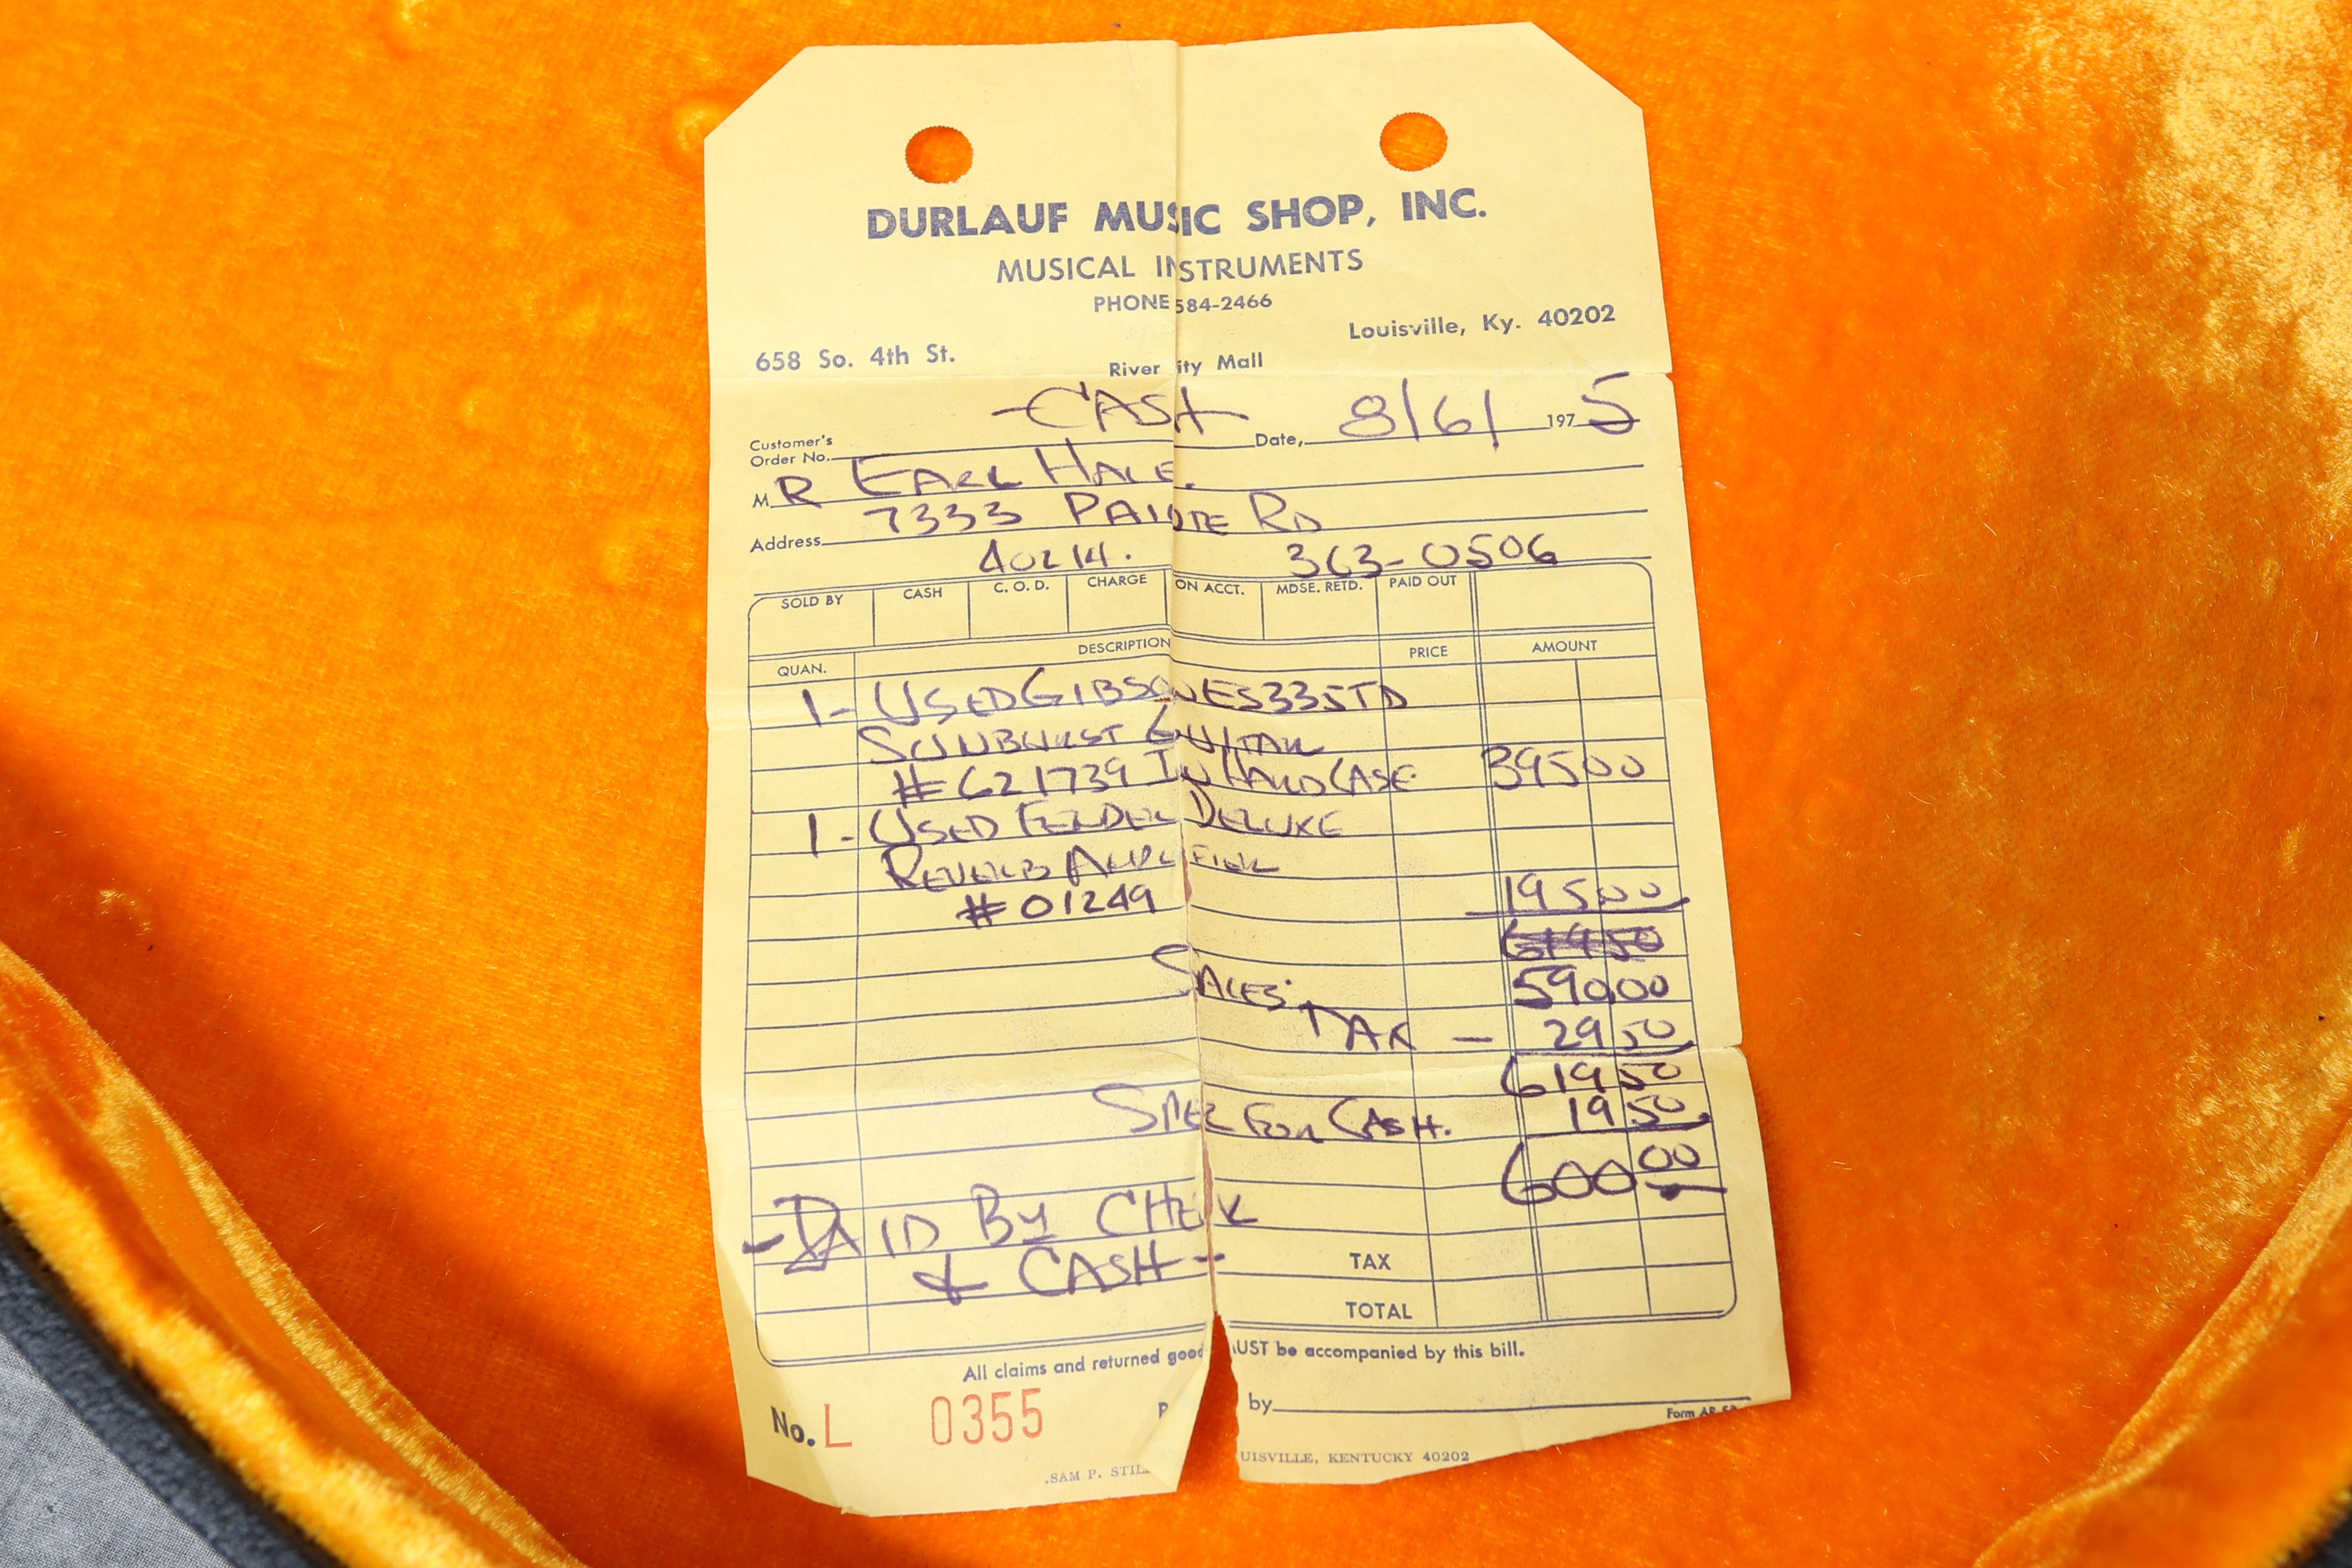 DURLAUF MUSIC SHOP, INC.
MUSICAL INSTRUMENTS
PHONE 584-2466
658 So. 4th St. Louisville, Ky. 40202
River ity Mall
-CASH-
Customer's Order No. Date, 8/6/ 1975
MR EARL HALE.
Address 7333 Rd
40214. 363-0506
SOLD BY CASH C. O. D. CHARGE ON ACCT. MDSE. RETD. PAID OUT
QUAN. DESCRIPTION PRICE AMOUNT
1- USED GIBSON ES335TD
SUNBURST GUITAR
#621739 IN HARD CASE. 395 00
1- USED FENDER DELUXE
REVERB AMPLIFIER
#01249 195 00
619 50
590 00
SALES TAX - 29 50
619 50
SPEC FOR CASH. 19 50
600 00
-PAID BY CHECK
& CASH-
TAX
TOTAL
All claims and returned good UST be accompanied by this bill.
No. L 0355 by
Form
SAM P. STIL UISVILLE, KENTUCKY 40202